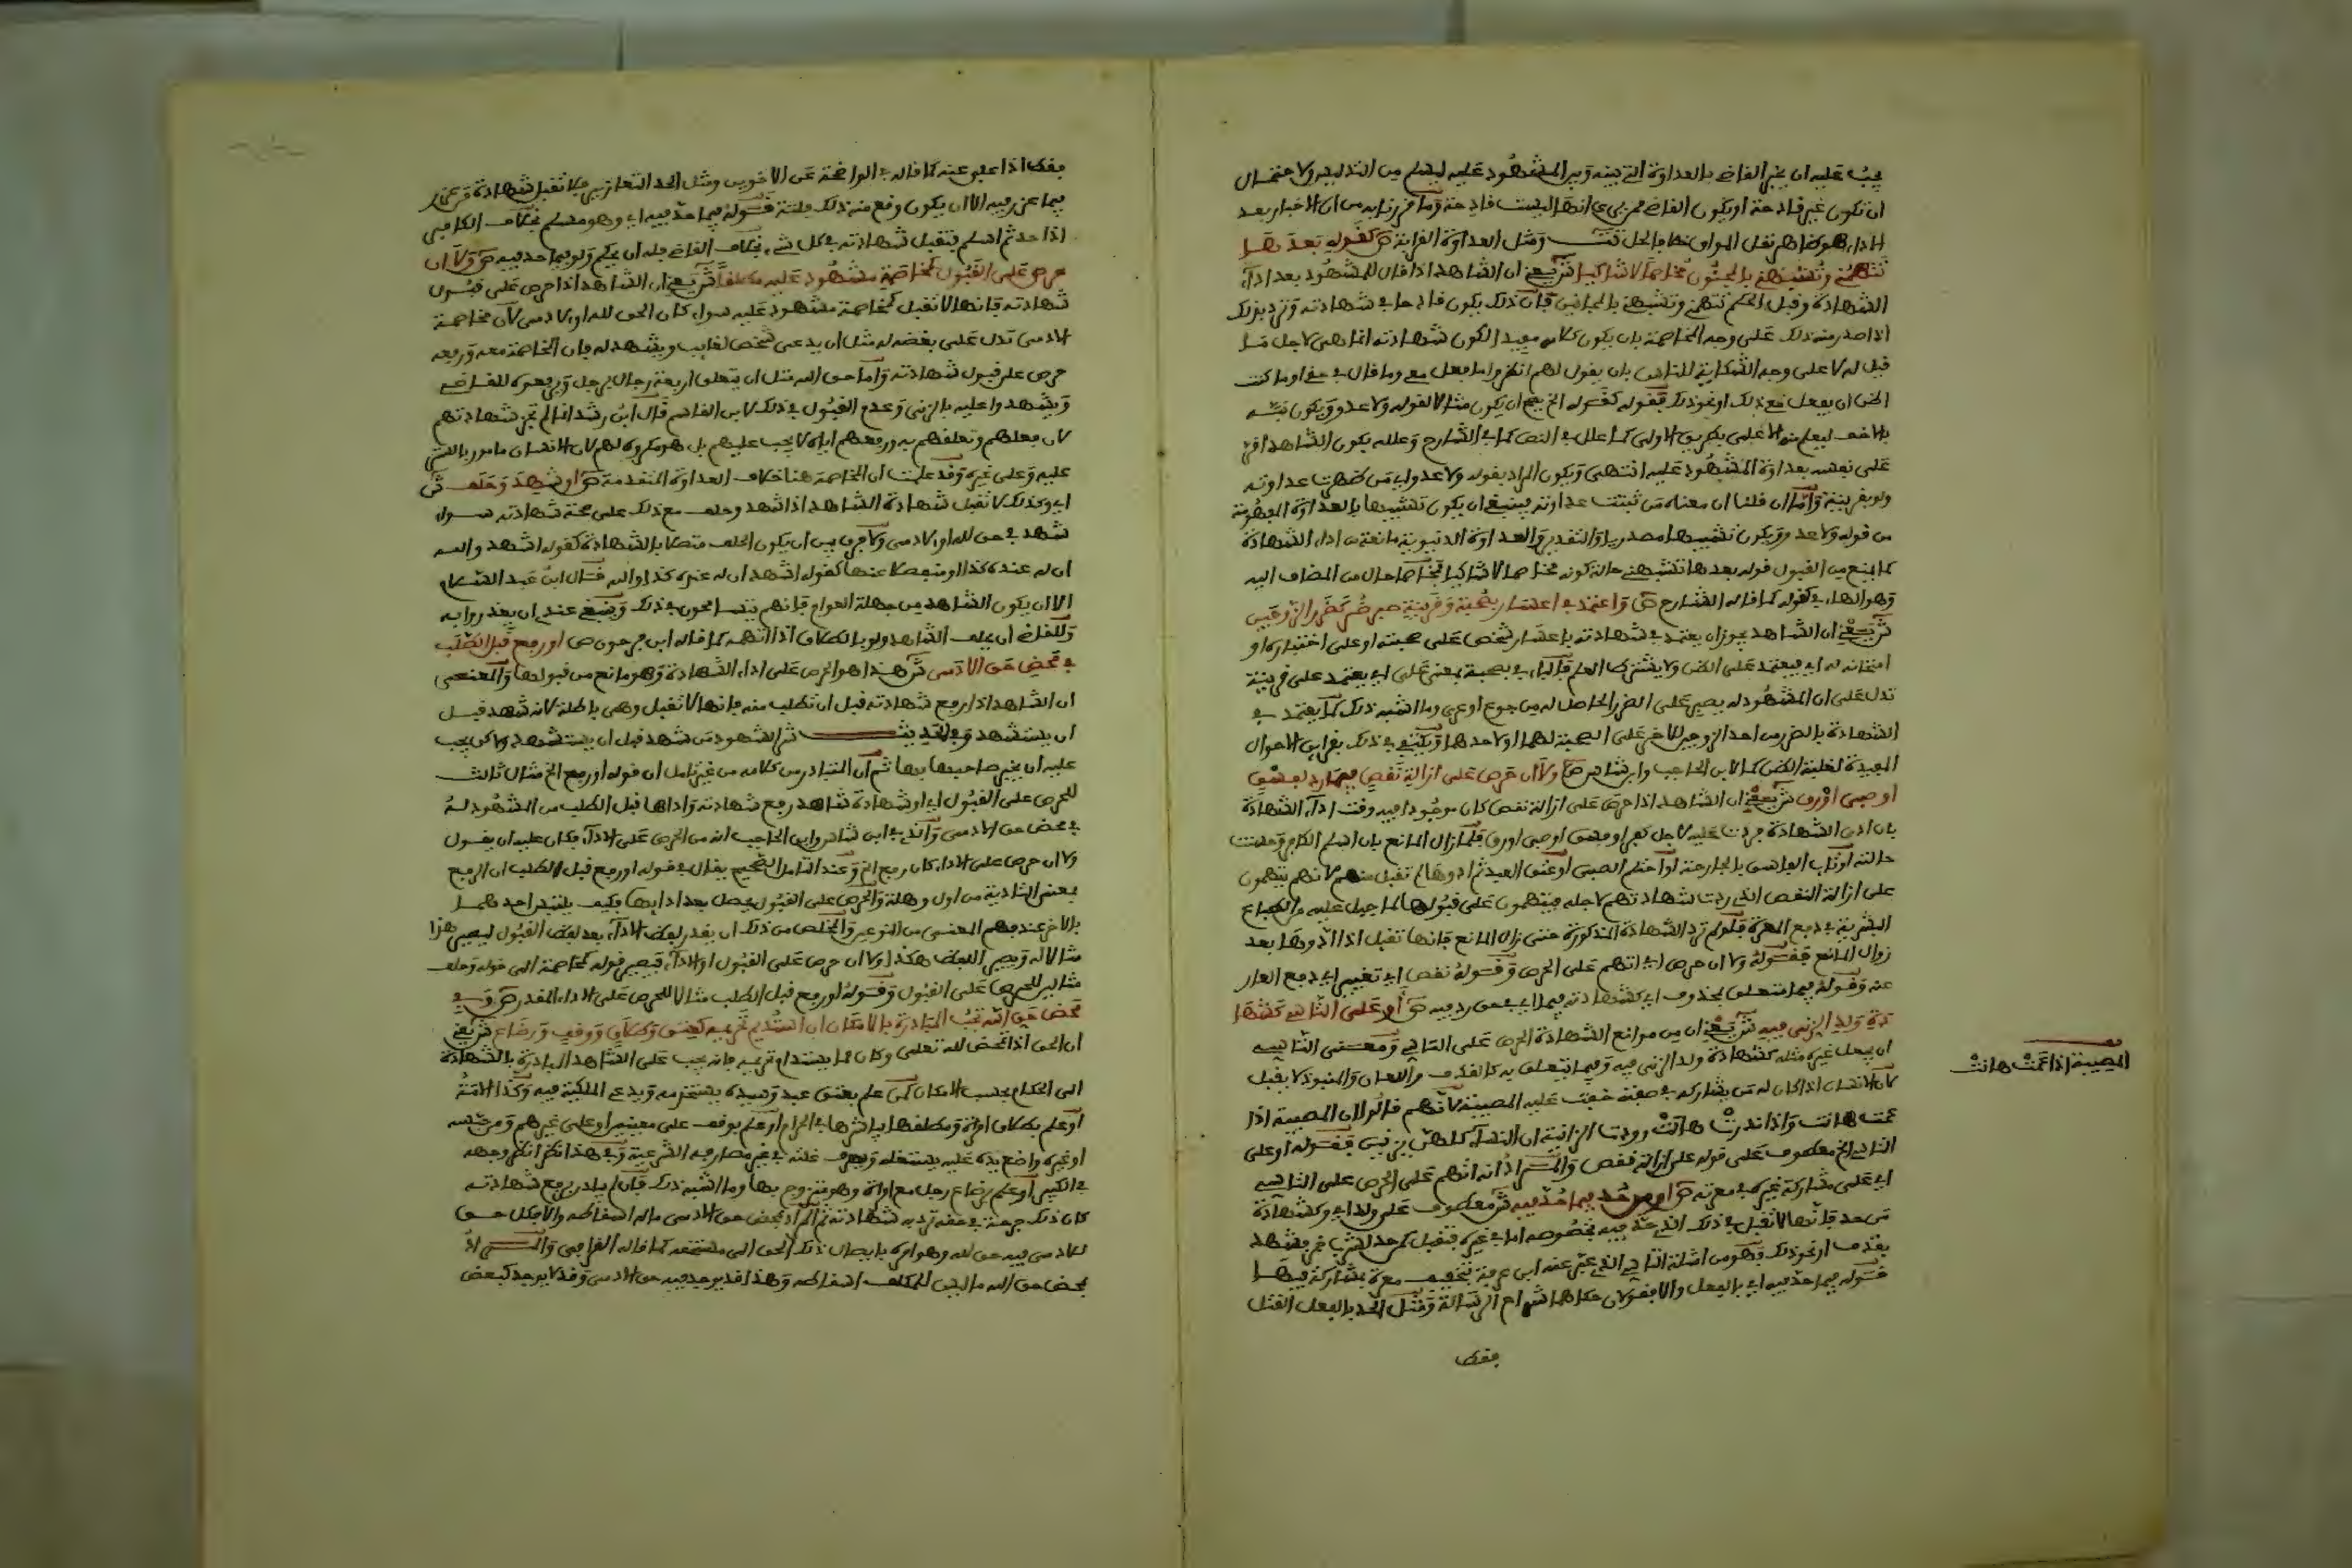 يجب عليه ان يخبر القاضي بالعداوة التي بينه وبين المشهود عليه ليسلم من التدليس ولاحتمال
ان تكون غير قادحة او يكون القاضي ممن يرى انها ليست قادحة وما قررنا به من ان الاخبار بعد
الاداء هو ظاهر نقل المواق
تتهمني وتشبهني بالمجنون مخاصما لا شاكيا ش يعني ان الشاهد اذا قال للمشهود بعد اداء
الشهادة وقبل الحكم تتهمني وتشبهني بالمجانين فان ذلك يكون قادحا في شهادته وترد بذلك
اذا صدر منه ذلك على وجه المخاصمة بان يكون كلامه مفيدا لكون شهادته انما هي لاجل ما
قيل له لا على وجه الشكاية للناس بان يقول لهم انظروا ما فعل معي وما قال في حقي او ما كنت
اظن ان يفعل مع ذلك او نحو ذلك فقوله كقوله الخ يصح ان يكون مثالا لقوله ولا عدو ويكون نبه
بالاخف ليعلم منه الاعلى بطريق الاولى كما علل في النص كما في الشارح وعلله بكون الشاهد اقر
على نفسه بعداوة المشهود عليه انتهى ويكون المراد بقوله ولا عدو اي من ظهرت عداوته
ولو بقرينة واما ان قلنا ان معناه من ثبتت عداوته فينبغي ان يكون تشبيها بالعداوة المفهومة
من قوله ولا عدو ويكون تشبيها مصدريا والتقدير والعداوة الدنيوية مانعة من اداء الشهادة
كما يمنع من القبول قوله بعدها تشبهني حالة كونه مخاصما لا شاكيا فمخاصما حال من المضاف اليه
وهو الهاء في كقوله كما قاله الشارح ص واعتمد في اعسار بصحبة وقرينة صبر ضر كضرر الزوجين
ش يعني ان الشاهد يجوز ان يعتمد في شهادته باعسار شخص على صحبته او على اختباره او
امتحانه له اي فيعتمد على الظن ولا يشترط العلم فالباء في بصحبة بمعنى على اي يعتمد على قرينة
تدل على ان المشهود له يصبر على الضرر الحاصل له من جوع او عري وما اشبه ذلك كما يعتمد في
الشهادة بالضرر من احد الزوجين للاخر على الصحبة لهما او لاحدهما ويكتفي في ذلك بقراين الاحوال
المفيدة لغلبة الظن كما لابن الحاجب وابن شاس ص ولا ان حرص على ازالة نقص فيما رد لفسق
او صبي او رق ش يعني ان الشاهد اذا حرص على ازالة نقص كان موجودا فيه وقت اداء الشهادة
بان ادى الشهادة فردت عليه لاجل كفر او فسق او صبى او رق فلما زال المانع بان اسلم الكافر وحسنت
حالته او تاب الفاسق بالجارحة او احتلم الصبي او عتق العبد ثم ادوها لم تقبل منهم لانهم يتهمون
على ازالة النقص الذي ردت شهادتهم لاجله فيتهمون على قبولها لما جبل عليه من الطباع
البشرية في دفع المعرة فلو لم ترد الشهادة المذكورة حتى زال المانع فانها تقبل اذا ادوها بعد
زوال المانع فقوله ولا ان حرص اي اتهم على الحرص وقوله نقص اي تعيير اي دفع العار
عنه وقوله فيما متعلق بمحذوف اي كشهادته فيما اي في حق رد فيه ص او على التاسي كشها
دة ولد الزنى فيه ش يعني ان من موانع الشهادة الحرص على التاسي ومعنى التاسي
ان يجعل غيره مثله كشهادة ولد الزنى فيه وفيما يتعلق به كالقذف واللعان والمنبوذ لا يقبل
لان الانسان اذا كان له من يشاركه في صفته خفت عليه المصيبة لانهم قالوا ان المصيبة اذا
عمت هانت واذا ندرت هالت وودت الزانية ان النساء كلهن يزنين فقوله او على
التاسي الخ معطوف على قوله على ازالة نقص والمراد انه اتهم على الحرص على التاسي
اي على مشاركة غيره في معرته ص او من حد فيما حد فيه ش معطوف على ولد اي وكشهادة
من حد فانها لا تقبل في ذلك الذي حد فيه بخصوصه اما في غيره فتقبل كمن حد لشرب خمر فيشهد
بقذف او نحو ذلك وهو من امثلة التاسي الذي عبر عنه ابن عرفة بتخفيف معرة بمشاركة فيها
قوله فيما حد فيه اي بالفعل والا فقولان حكاهما شراح الرسالة ومثل الحد بالفعل القتل
فقط
المصيبة اذا عمت هانت
فقط اذا عفي عنه كما قاله في الواضحة عن الاخوين ومثل الحد التعازير فلا تقبل شهادة من عزر
فيما عزر فيه الا ان يكون وقع منه ذلك فلتة قوله فيما حد فيه اي وهو مسلم بخلاف الكافر
اذا حد ثم اسلم فتقبل شهادته في كل شيء بخلاف القاضي فله ان يحكم ولو فيما حد فيه ص ولا ان
حرص على القبول كمخاصمة مشهود عليه مطلقا ش يعني ان الشاهد اذا حرص على قبول
شهادته فانها لا تقبل كمخاصمة مشهود عليه سواء كان الحق لله او لادمي لان مخاصمة
الادمي تدل على بغضه له مثل ان يدعي شخص لغايب ويشهد له فان المخاصمة معه ورفعه
حرص على قبول شهادته واما حق الله مثل ان يتعلق اربعة رجال برجل ويرفعوه للقاضي
ويشهدوا عليه بالزنى وعدم القبول في ذلك لابن القاسم قال ابن رشد انما لم تجز شهادتهم
لان فعلهم وتعلقهم به ورفعهم اياه لا يجب عليهم بل هو مكروه لهم لان الانسان مامور بالستر
عليه وعلى غيره وقد علمت ان المخاصمة هنا خلاف العداوة المتقدمة ص او شهد وحلف ش
اي وكذلك لا تقبل شهادة الشاهد اذا شهد وحلف مع ذلك على صحة شهادته سواء
شهد في حق لله او لادمي ولا فرق بين ان يكون الحلف متصلا بالشهادة كقوله اشهد والله
ان له عنده كذا او منفصلا عنها كقوله اشهد ان له عنده كذا والله قال ابن عبد السلام
الا ان يكون الشاهد من جهلة العوام فانهم يتسامحون في ذلك وينبغي عندي ان يعذروا به
وللقاضي ان يحلف الشاهد ولو بالطلاق اذا اتهمه كما قاله ابن فرحون ص او رفع قبل الطلب
في محض حق الادمي ش هذا هو الحرص على اداء الشهادة وهو مانع من قبولها والمعنى
ان الشاهد اذا رفع شهادته قبل ان تطلب منه فانها لا تقبل وهي باطلة لانه شهد قبل
ان يستشهد وفي الحديث شر الشهود من شهد قبل ان يستشهد ولاكن يجب
عليه ان يخبر صاحبها بها ثم ان المتبادر من كلامه من غير تامل ان قوله او رفع الخ مثال ثالث
للحرص على القبول اي او شهادة شاهد رفع شهادته واداها قبل الطلب من المشهود له
في محض حق الادمي والذي في ابن شاس وابن الحاجب انه من الحرص على الاداء فكان عليه ان يقول
ولا ان حرص على الاداء كان رفع الخ وعند التامل الصحيح يقال في قوله او رفع قبل الطلب ان الرفع
بمعنى التادية من اول وهلة والحرص على القبول يحصل بعد ادايها فكيف يلتبس احدهما
بالاخر عند فهم المعنى من النوعين والمخلص من ذلك ان يقدر لفظ الاداء بعد لفظ القبول ليصير هذا
مثالا له ويصير اللفظ هكذا ولا ان حرص على القبول او الاداء فيصير قوله كمخاصمة الى قوله وحلف
مثالين للحرص على القبول وقوله او رفع قبل الطلب مثالا للحرص على الاداء المقدر ص وفي
محض حق الله تجب المبادرة بالامكان ان استديم تحريمه كعتق وطلاق ووقف ورضاع ش يعني
ان الحق اذا تمحض لله تعالى وكان مما يستدام تحريمه فانه يجب على الشاهد المبادرة بالشهادة
الى الحكام بحسب الامكان كمن علم بعتق عبد وسيده يستخدمه ويدعي الملكية فيه وكذا الامة
او علم بطلاق امراة ومطلقها يعاشرها في الحرام او علم بوقف على معينين او على غيرهم ومن حبسه
او غيره واضع يده عليه يستغله ويصرف غلته في غير مصارفه الشرعية وفي هذا نظر انظر وجهه
في الكبير او علم برضاع رجل مع امراة وهو متزوج بها وما اشبه ذلك فان لم يبادر برفع شهادته
كان ذلك جرحة في حقه ترد به شهادته ثم المراد بمحض حق الادمي ماله اسقاطه والا فكل حق
لادمي فيه حق لله وهو امره بايصال ذلك الحق الى مستحقه كما قاله القرافي والمراد
بمحض حق الله ما ليس للمكلف اسقاطه وهذا قد يوجد فيه حق الادمي وقد لا يوجد كبعض